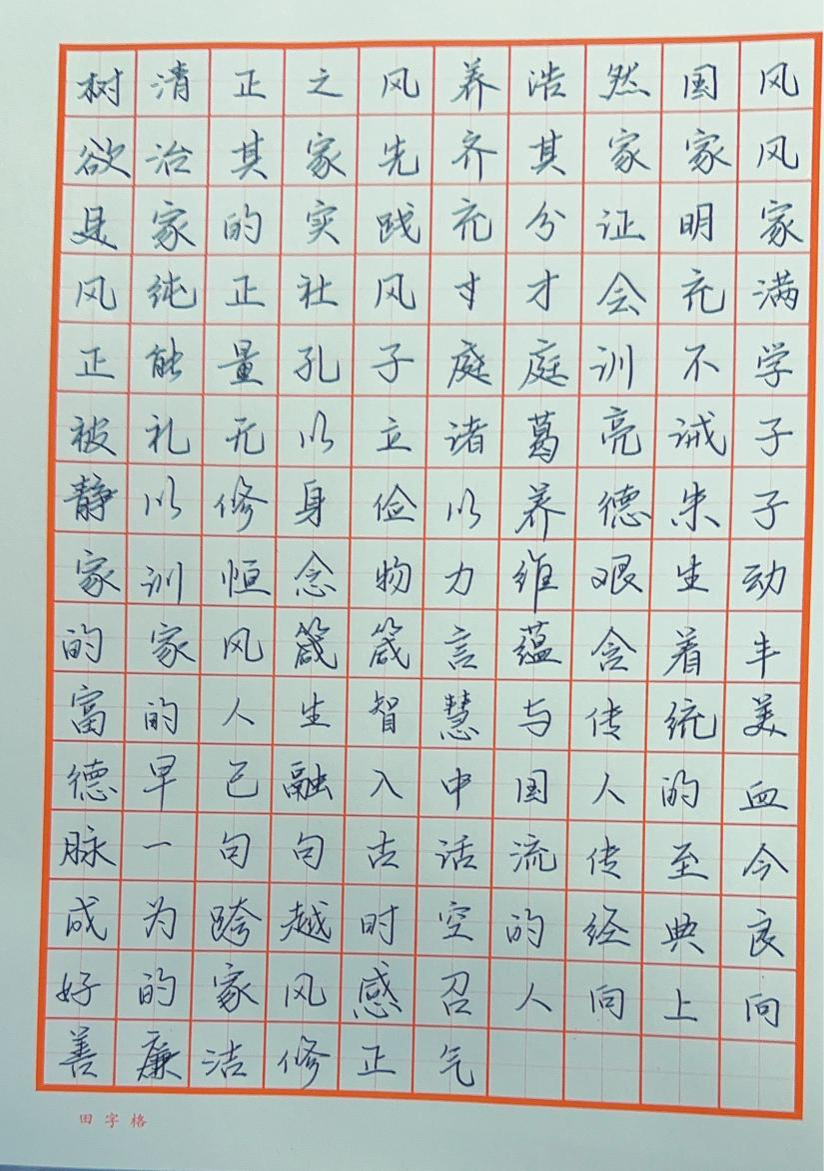 树清正之风养浩然国风
欲治其家先齐其家家风
是家的实践充分证明家
风纯正社风寸才会充满
正能量孔子庭庭训不学
被礼无以立诸葛亮诫子
静以修身俭以养德朱子
家训恒念物力维艰生动
的家风箴箴言蕴含着丰
富的人生智慧与传统美
德早已融入中国人的血
脉一句句古话流传至今
成为跨越时空的经典良
好的家风感召人向上向
善廉洁修正气
田字格